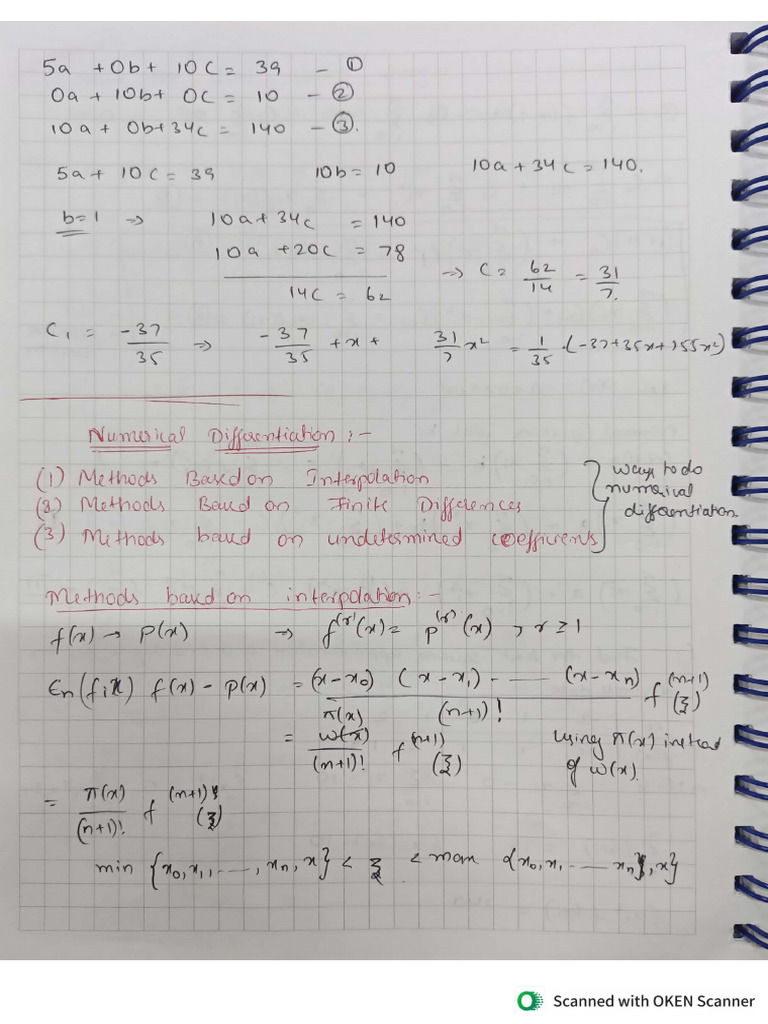 5a + 0b + 10c = 39 — ①
0a + 10b + 0c = 10 — ②
10a + 0b + 34c = 140 — ③.
5a + 10c = 39 10b = 10 10a + 34c = 140.
b = 1 ⇒ 10a + 34c = 140
10a + 20c = 78
14c = 62 ⇒ c = 62/14 = 31/7.
C₁ = -37/35 ⇒ -37/35 + x + 31/7 x² = 1/35 · (-37+35x+155x²)
Numerical Differentiation :-
(1) Methods Based on Interpolation
(2) Methods Based on Finite Differences
(3) Methods based on undetermined coefficients
ways to do
numerical
differentiation
Methods based on interpolation :-
f(x) → P(x) → f⁽ʳ⁾(x) = P⁽ʳ⁾(x) , r ≥ 1
En(f; x) f(x) - P(x) = (x-x₀) (x-x₁) - ---- (x-xn) / (n+1)! f⁽ⁿ⁺¹⁾(ξ)
= π(x) / (n+1)! f⁽ⁿ⁺¹⁾(ξ) using π(x) instead
of w(x).
= π(x) / (n+1)! f⁽ⁿ⁺¹⁾(ξ)
min {x₀, x₁, ----, xn, x} < ξ < max {x₀, x₁, ---- xn, x}
Scanned with OKEN Scanner